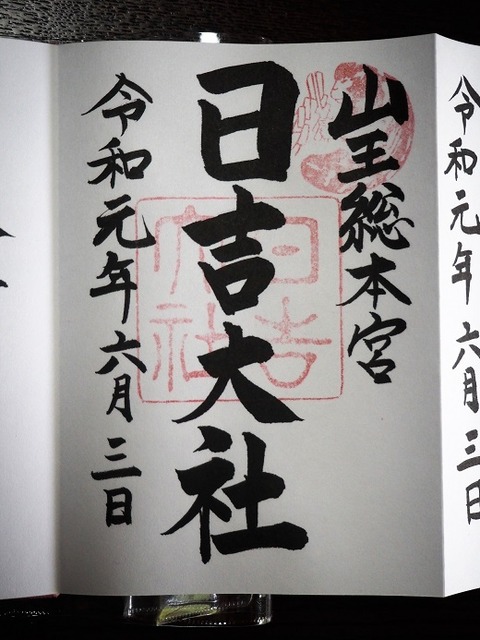 令和元年六月三日
山王総本宮
日吉大社
日吉大社
令和元年六月三日